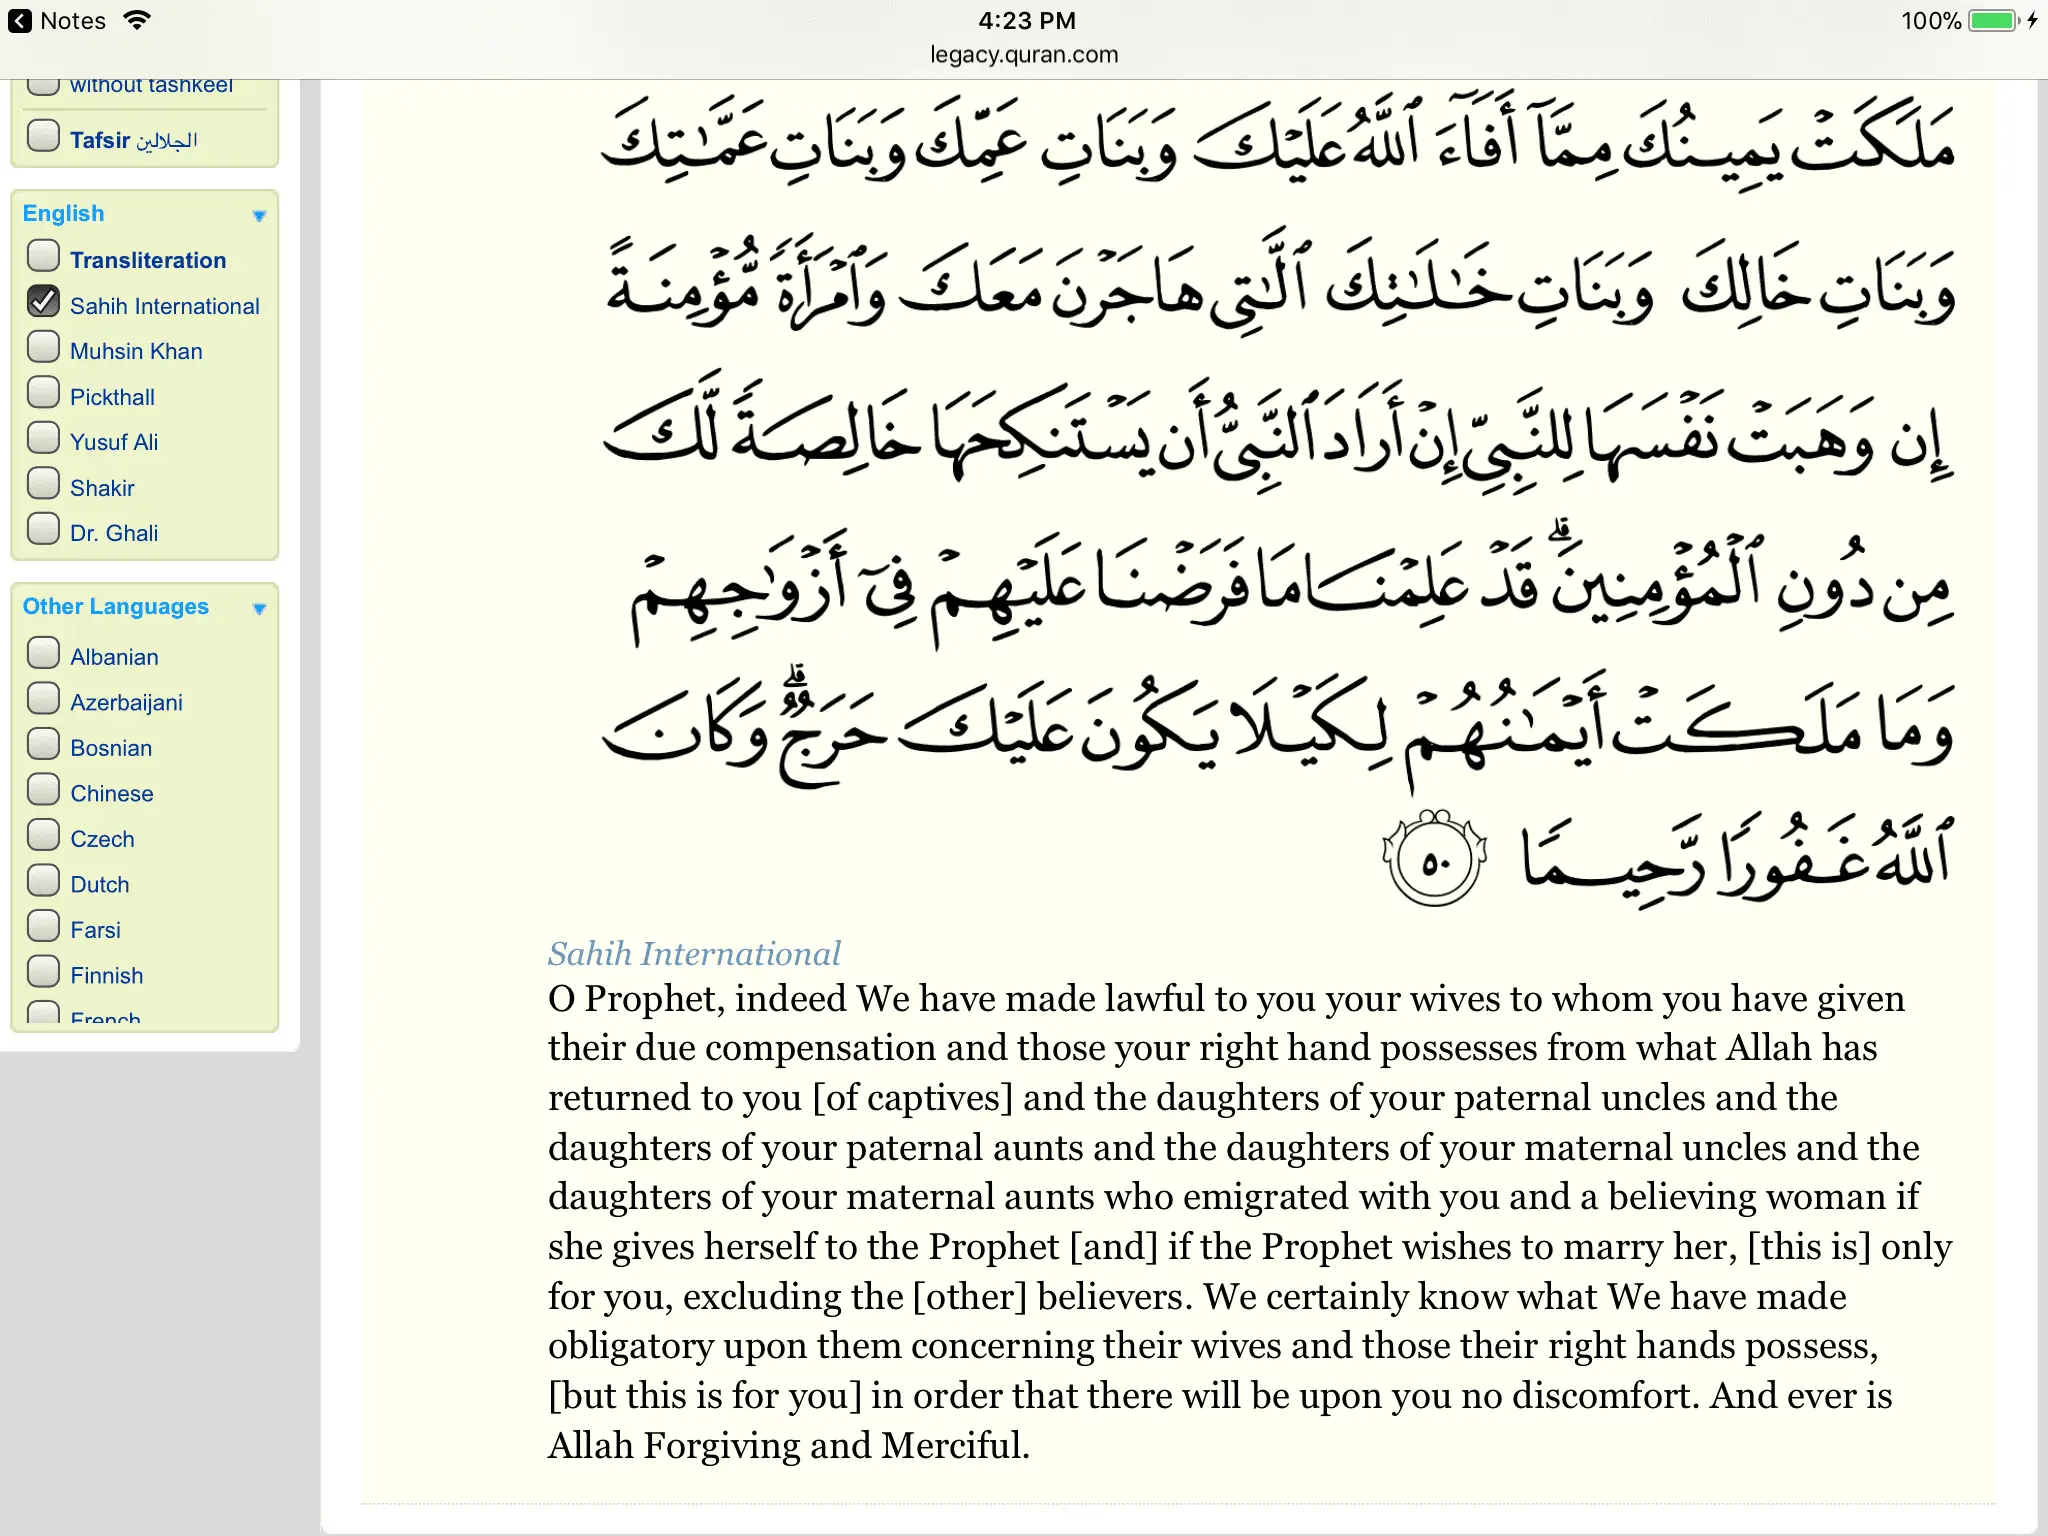 Notes
4:23 PM
100%
legacy.quran.com
without tashkeel
Tafsir الجلالين
English
Transliteration
Sahih International
Muhsin Khan
Pickthall
Yusuf Ali
Shakir
Dr. Ghali
Other Languages
Albanian
Azerbaijani
Bosnian
Chinese
Czech
Dutch
Farsi
Finnish
French
مَلَكَتْ يَمِينُكَ مِمَّآ أَفَآءَ ٱللَّهُ عَلَيْكَ وَبَنَاتِ عَمِّكَ وَبَنَاتِ عَمَّـٰتِكَ
وَبَنَاتِ خَالِكَ وَبَنَاتِ خَـٰلَـٰتِكَ ٱلَّـٰتِى هَاجَرْنَ مَعَكَ وَٱمْرَأَةً مُّؤْمِنَةً
إِن وَهَبَتْ نَفْسَهَا لِلنَّبِىِّ إِنْ أَرَادَ ٱلنَّبِىُّ أَن يَسْتَنكِحَهَا خَالِصَةً لَّكَ
مِن دُونِ ٱلْمُؤْمِنِينَ ۗ قَدْ عَلِمْنَا مَا فَرَضْنَا عَلَيْهِمْ فِىٓ أَزْوَٰجِهِمْ
وَمَا مَلَكَتْ أَيْمَـٰنُهُمْ لِكَيْلَا يَكُونَ عَلَيْكَ حَرَجٌ ۗ وَكَانَ
ٱللَّهُ غَفُورًا رَّحِيمًا ٥٠
Sahih International
O Prophet, indeed We have made lawful to you your wives to whom you have given
their due compensation and those your right hand possesses from what Allah has
returned to you [of captives] and the daughters of your paternal uncles and the
daughters of your paternal aunts and the daughters of your maternal uncles and the
daughters of your maternal aunts who emigrated with you and a believing woman if
she gives herself to the Prophet [and] if the Prophet wishes to marry her, [this is] only
for you, excluding the [other] believers. We certainly know what We have made
obligatory upon them concerning their wives and those their right hands possess,
[but this is for you] in order that there will be upon you no discomfort. And ever is
Allah Forgiving and Merciful.